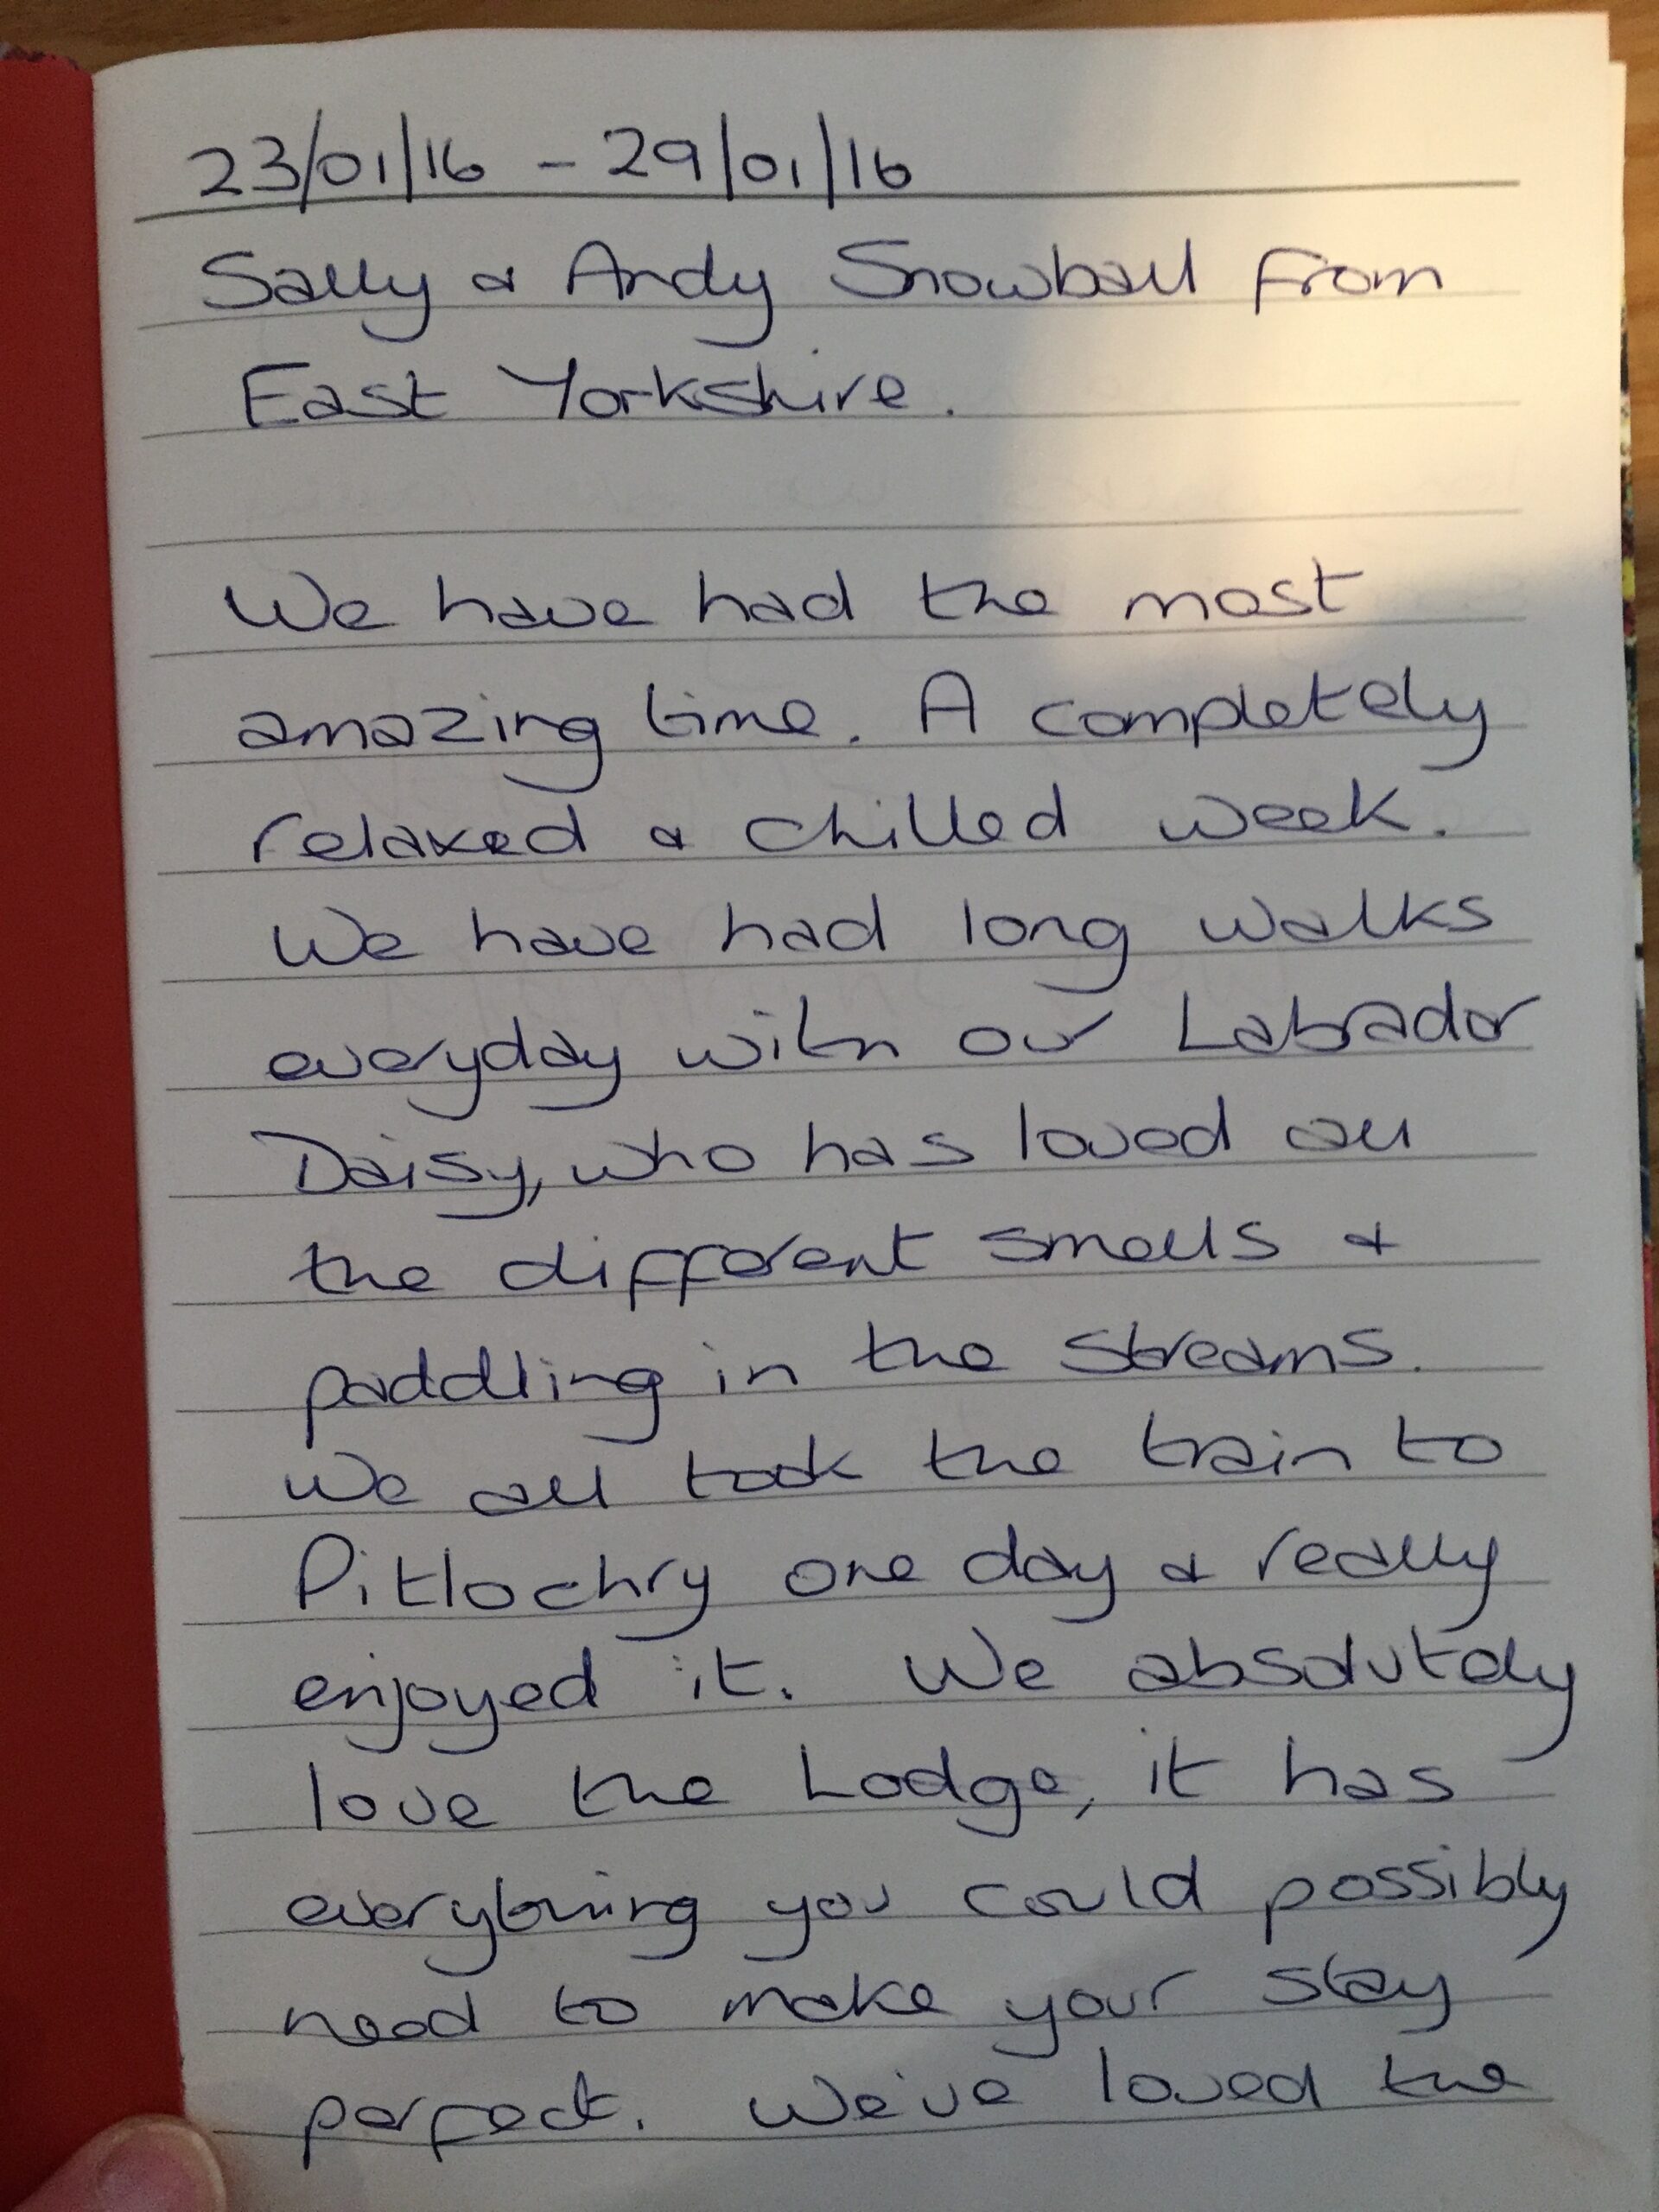 23/01/16 - 29/01/16
Sally & Andy Snowball from
East Yorkshire.
We have had the most
amazing time. A completely
relaxed & chilled week.
We have had long walks
everyday with our Labrador
Daisy, who has loved all
the different smells &
paddling in the streams.
We all took the train to
Pitlochry one day & really
enjoyed it. We absolutely
love the Lodge, it has
everything you could possibly
need to make your stay
perfect. We've loved the